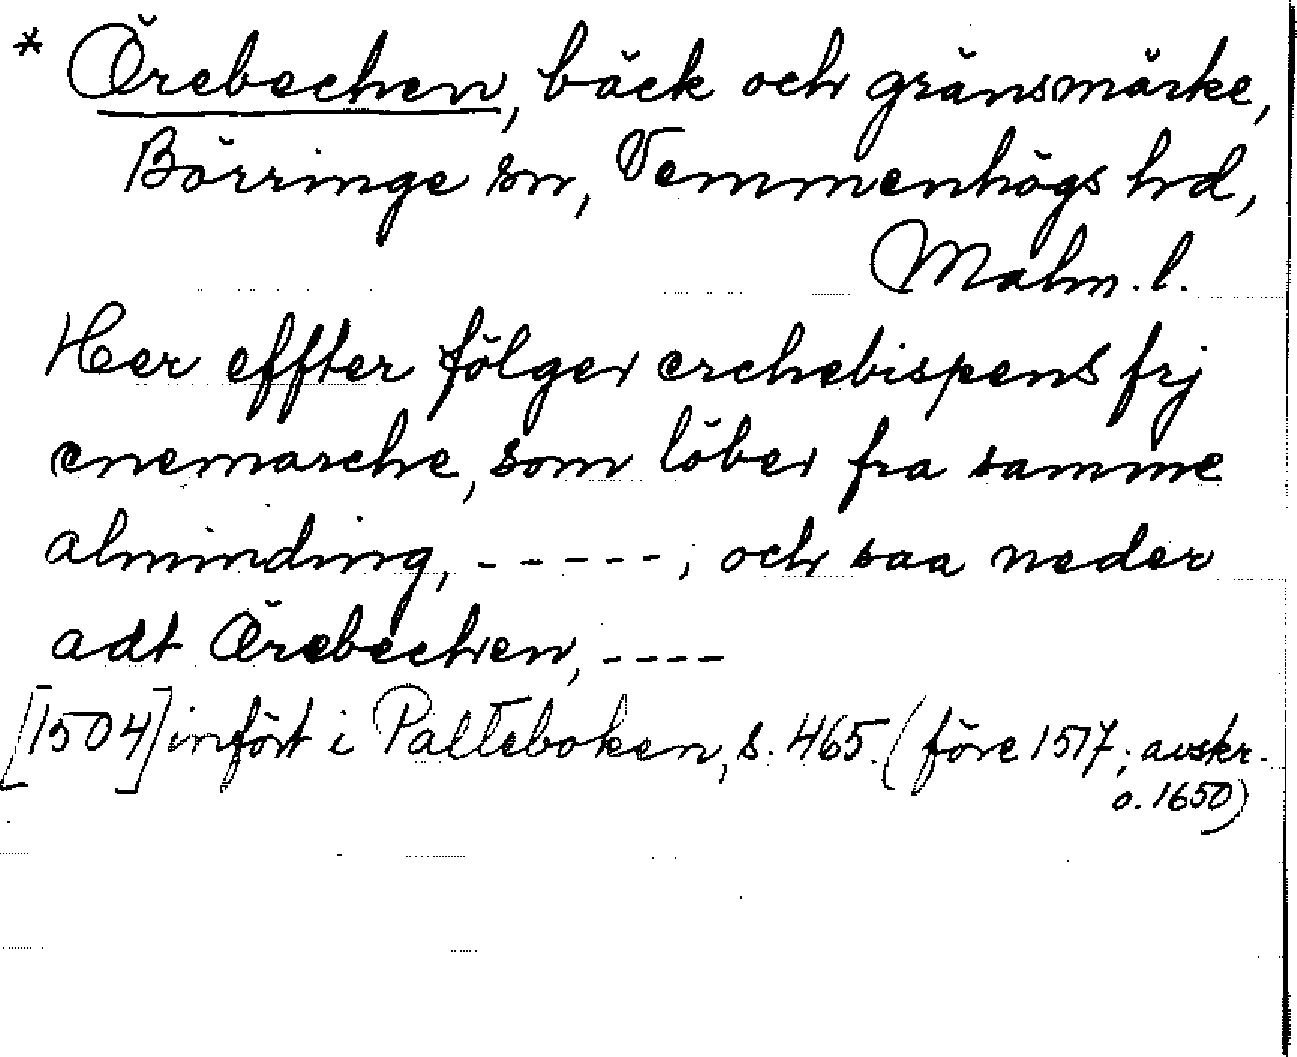 * Örebechen, bäck och gränsmärke,
Börringe sn, Vemmenhögs hd,
Malm. l.
Her effter fölger erchebispens frj
enemarche, som löber fra samme
alminding, - - - - - ; och saa neder
adt Örebechen, - - - -
[1504] infört i Palteboken, s. 465. (före 1517; avskr.
o. 1650)